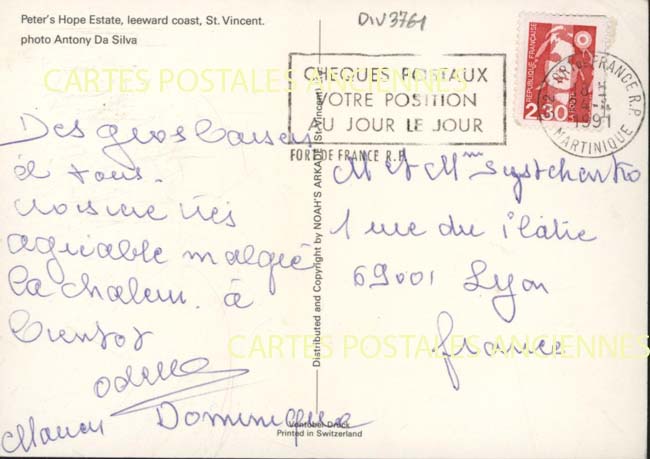 Peter's Hope Estate, leeward coast, St. Vincent.
photo Antony Da Silva
DIV3761
CARTES POSTALES ANCIENNES
CHEQUES POSTAUX
VOTRE POSITION
AU JOUR LE JOUR
FORT DE FRANCE R.P.
REPUBLIQUE FRANÇAISE
2,30
LA POSTE
FORT DE FRANCE R.P.
1991
MARTINIQUE
Des gros baisers
à tous.
très
agréable malgré
la chaleur. à
bientôt
Odile
Dominique
Distributed and Copyright by NOAH'S ARKADE (St. Vincent)
M et Mme
1 rue du
69001 Lyon
france
CARTES POSTALES ANCIENNES
Ventobel Druck
Printed in Switzerland